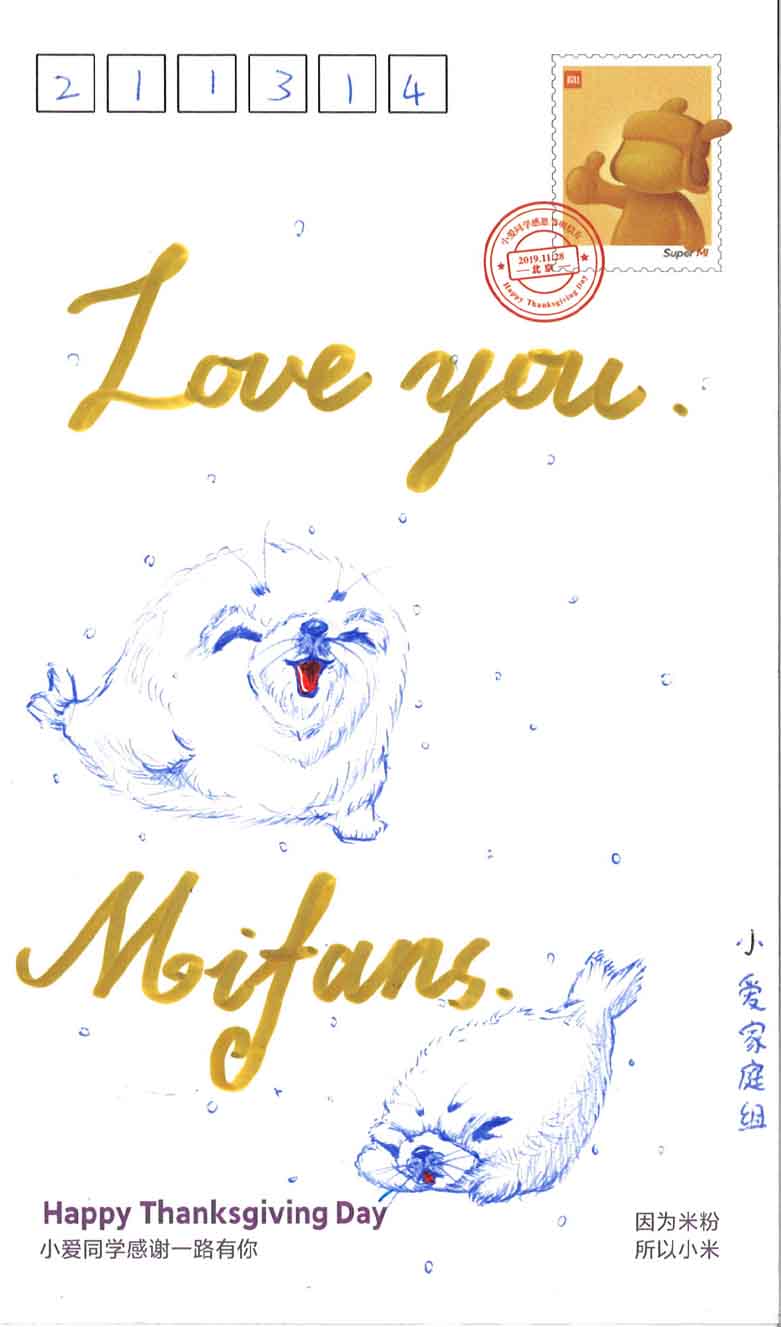 2 1 1 3 1 4
Super MI
小爱同学感恩节明信片
2019.11.28
北京
Happy Thanksgiving Day
Love you.
Mifans.
小爱家庭组
Happy Thanksgiving Day
小爱同学感谢一路有你
因为米粉
所以小米